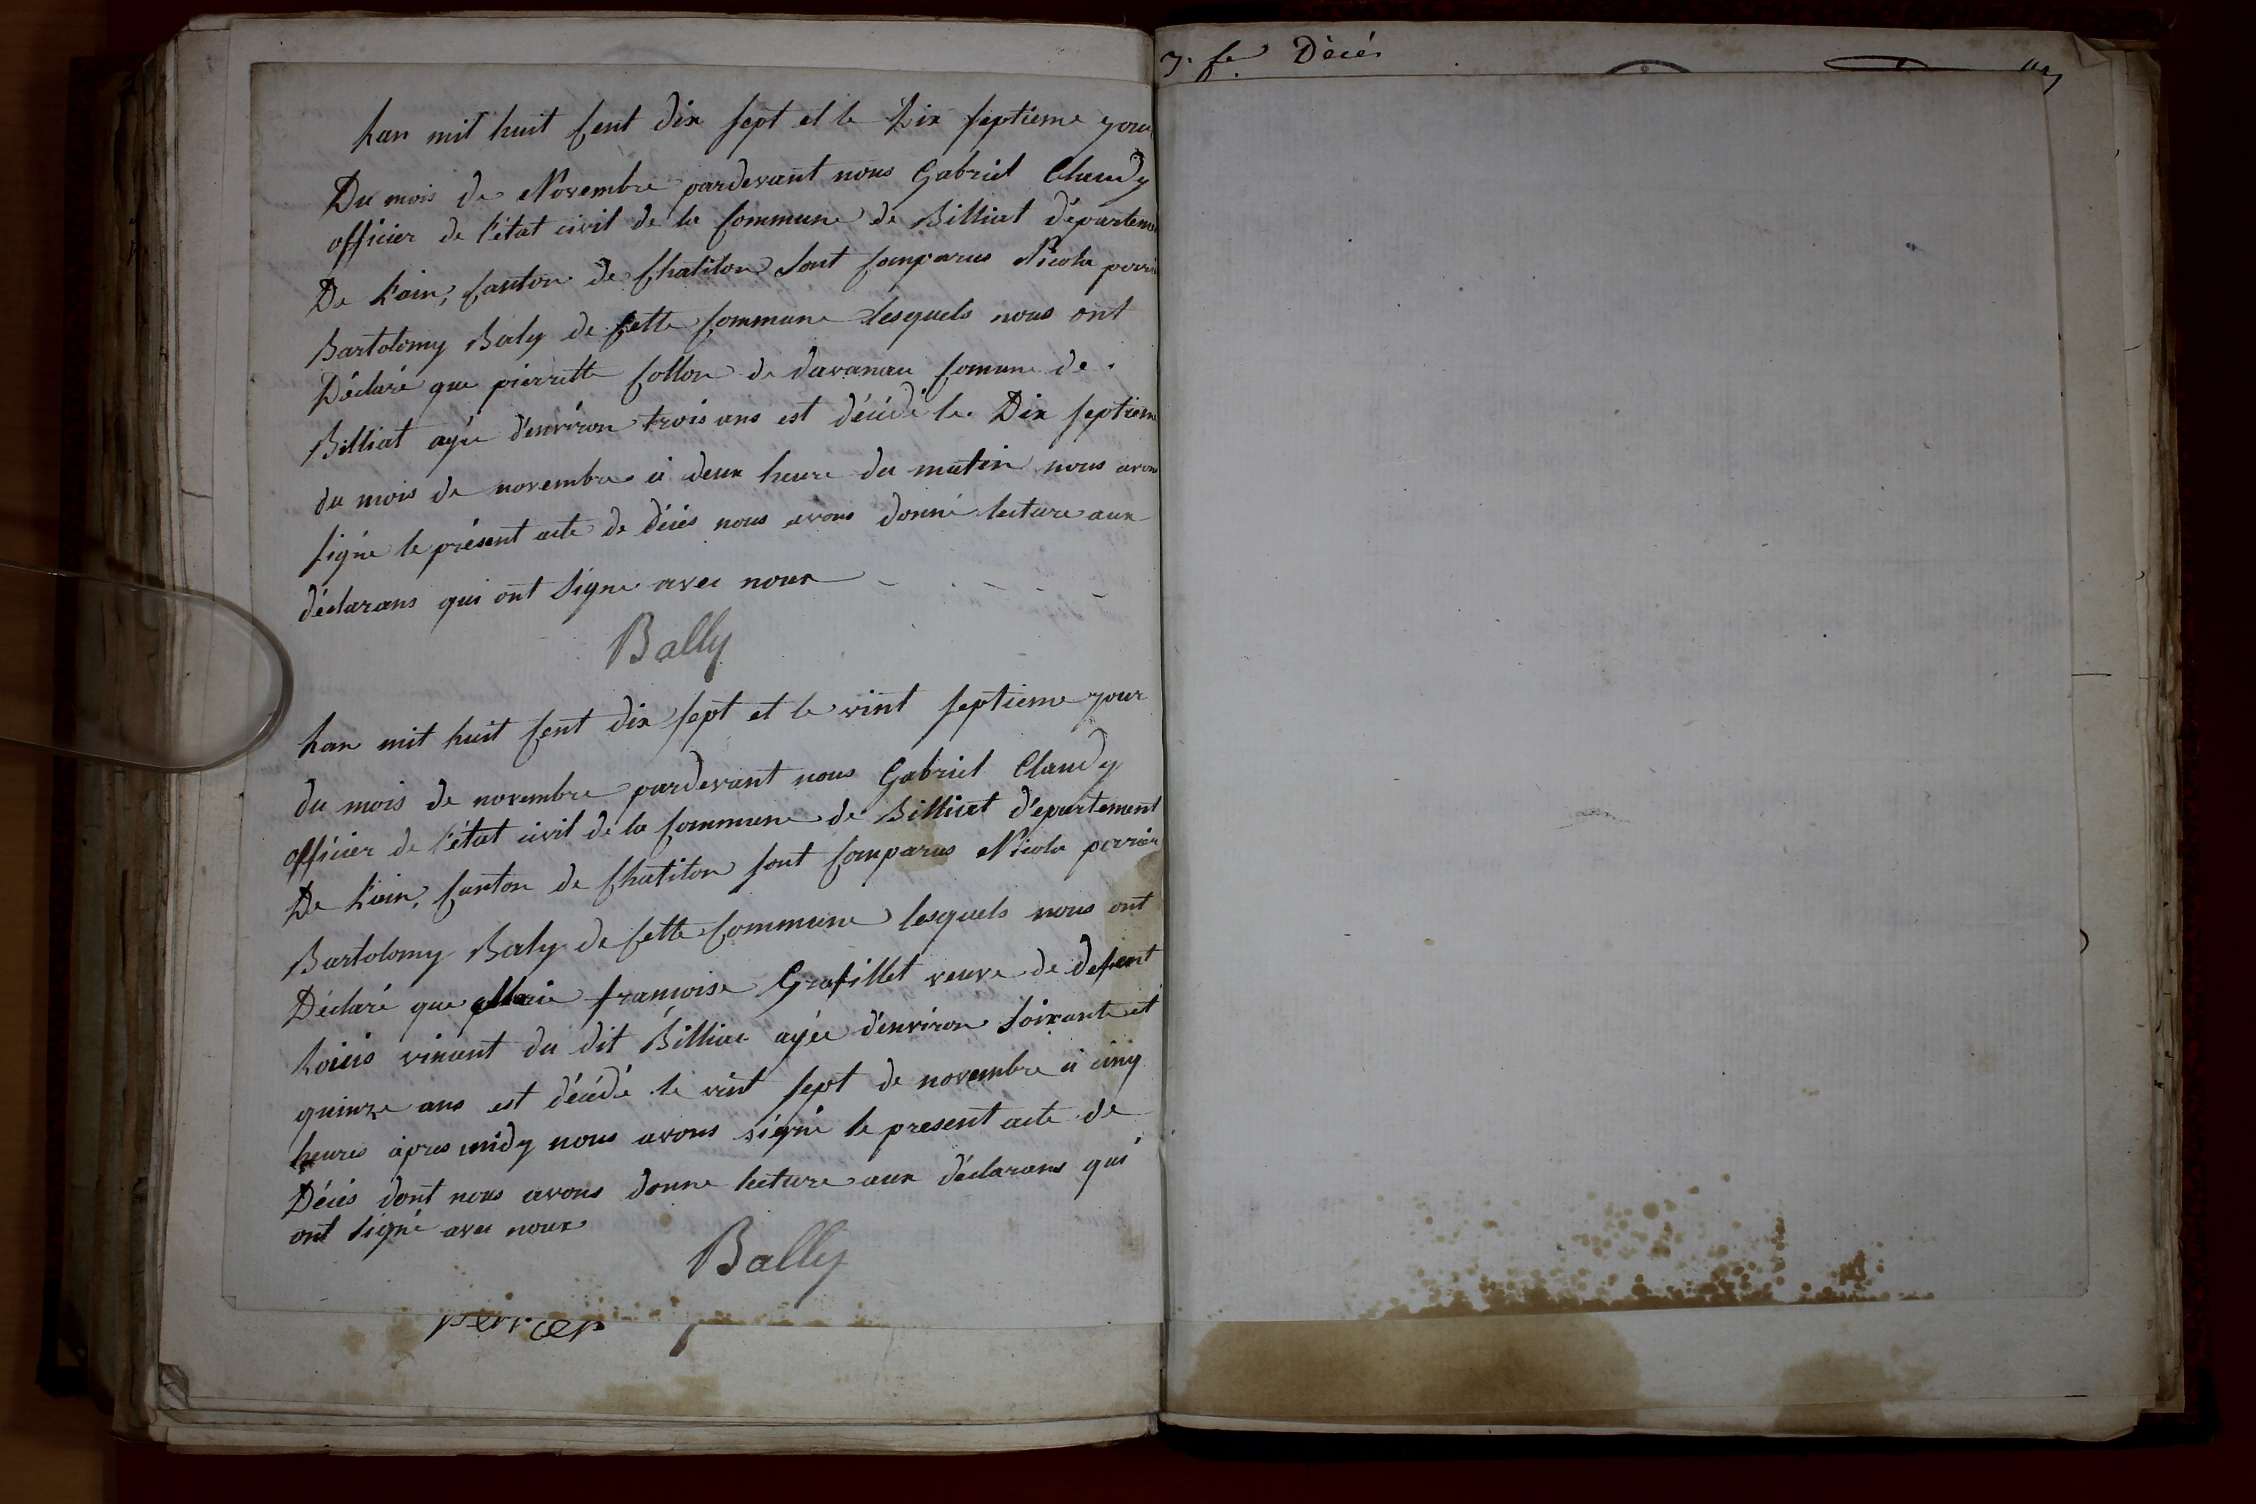 Lan mil huit sent dix sept et le dix septieme jour
Du mois de Novembre pardevant nous Gabriel Claudy
officier de l'état civil de la Commune de Billiat départeme
De l'ain, Canton de Chatilon sont Comparus Nicola perri
Bartolomy Baly de sette Commune lesquels nous ont
Déclaré que pierrette Collon de davanau Comune de
Billiat agée d'environ trois ans est décédé le Dix septieme
du mois de novembre a deux heure du matin nous avons
signe le présent acte de décés nous avons donné lecture aux
déclarans qui ont signe avec noux
Bally
Lan mil huit sent dix sept et le vint septieme jour
du mois de novembre pardevant nous Gabriel Claudy
officier de l'état civil de la Commune de Billiat département
De l'ain, Canton de Chatilon sont Comparus Nicola perrier
Bartolomy Baly de sette Commune lesquels nous ont
Déclaré que Marie francoise Grafillet veuve de defunt
Loiuis vincent du dit Billiac agée d'environ soixante et
quinze ans est décédé le vint sept de novembre a cinq
heures apres midy nous avons signé le present acte de
Décés dont nous avons donne lecture aux déclarans qui
ont signé avec noux
Bally
perrier
Décés